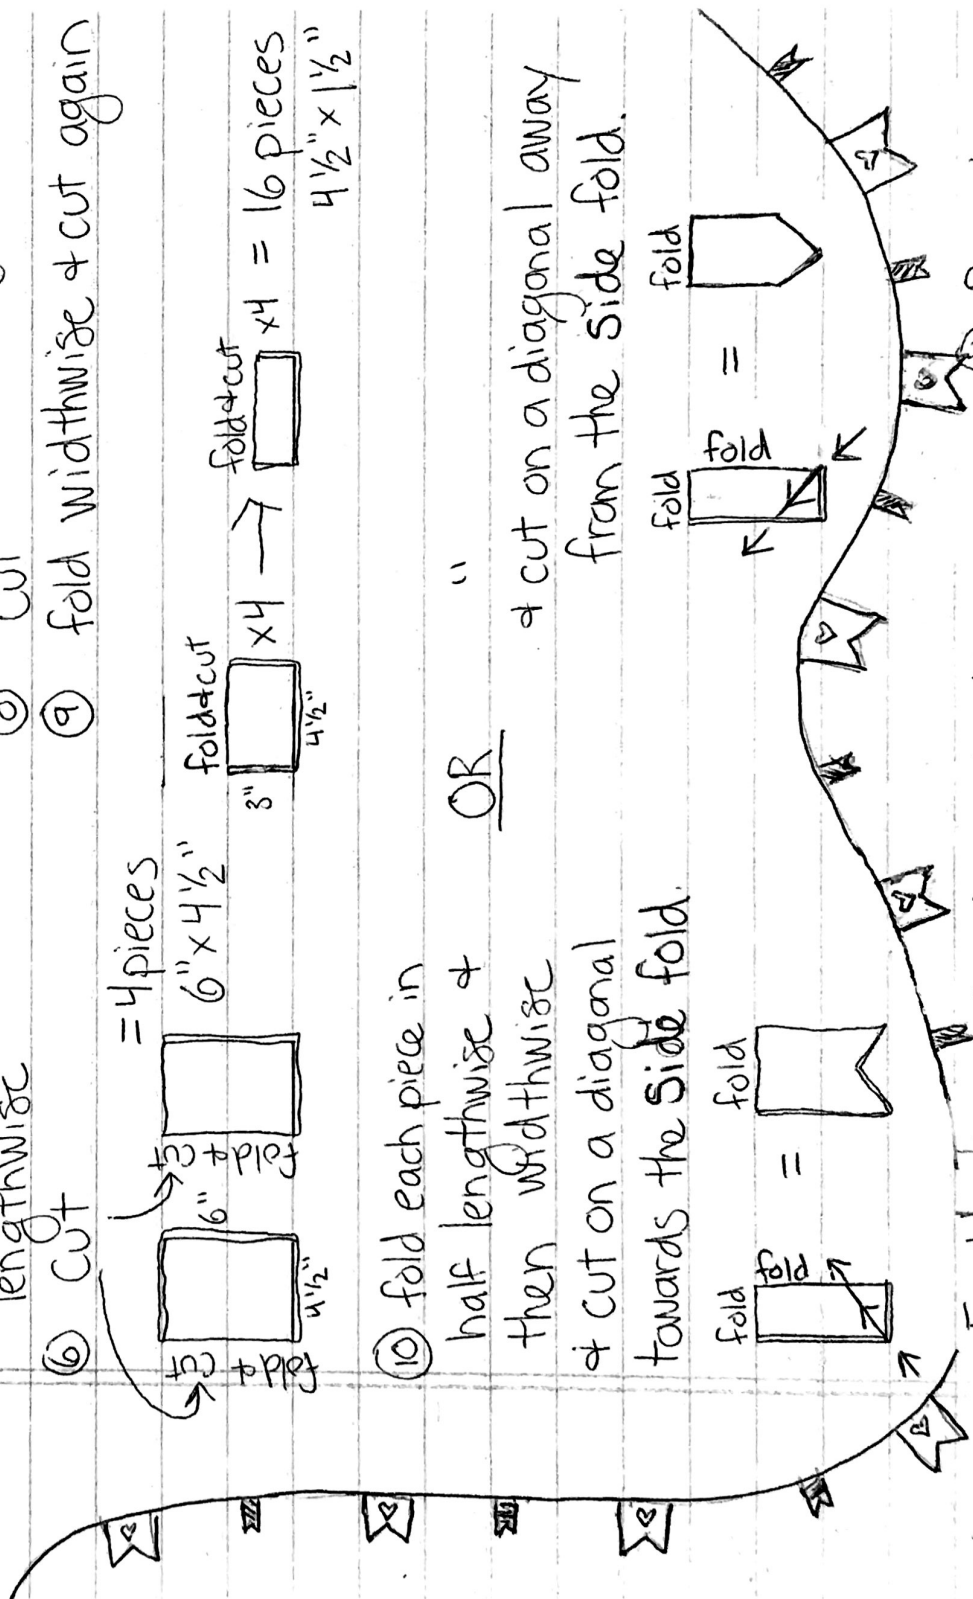 lengthwise
⑥ cut
⑧ cut
⑨ fold widthwise + cut again
= 4 pieces
6" x 4½"
fold + cut
6"
4½"
fold + cut
fold+cut
3"
4½"
x4 → fold+cut x4 = 16 pieces
4½" x 1½"
⑩ fold each piece in
half lengthwise +
then widthwise
+ cut on a diagonal
towards the side fold.
fold
fold
=
fold
OR
"
+ cut on a diagonal away
from the side fold.
fold
fold
=
fold